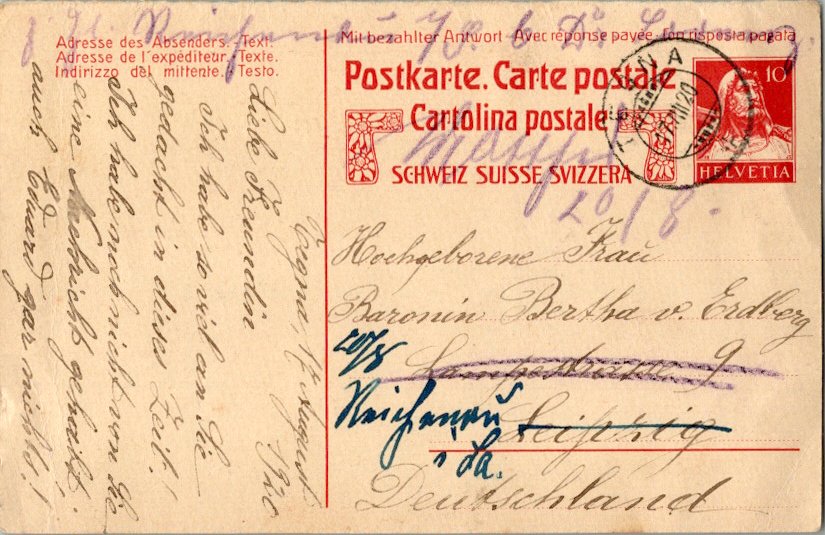 Adresse des Absenders. Text.
Adresse de l'expéditeur. Texte.
Indirizzo del mittente. Testo.
Mit bezahlter Antwort Avec réponse payée Con risposta pagata
Postkarte. Carte postale
Cartolina postale
SCHWEIZ SUISSE SVIZZERA
10
HELVETIA
TEGNA
20/8.
Hochgeborene Frau
Baronin Bertha v. Erdberg
20/8
9
Reichenau Leipzig
i Sa.
Deutschland
Tegna 17 August
1920
Liebe Freundin
Ich habe so viel an Sie
gedacht in dieser Zeit!
Ich habe noch nicht von Sie
eine Nachricht gehabt.
auch Eduard gar nichts!